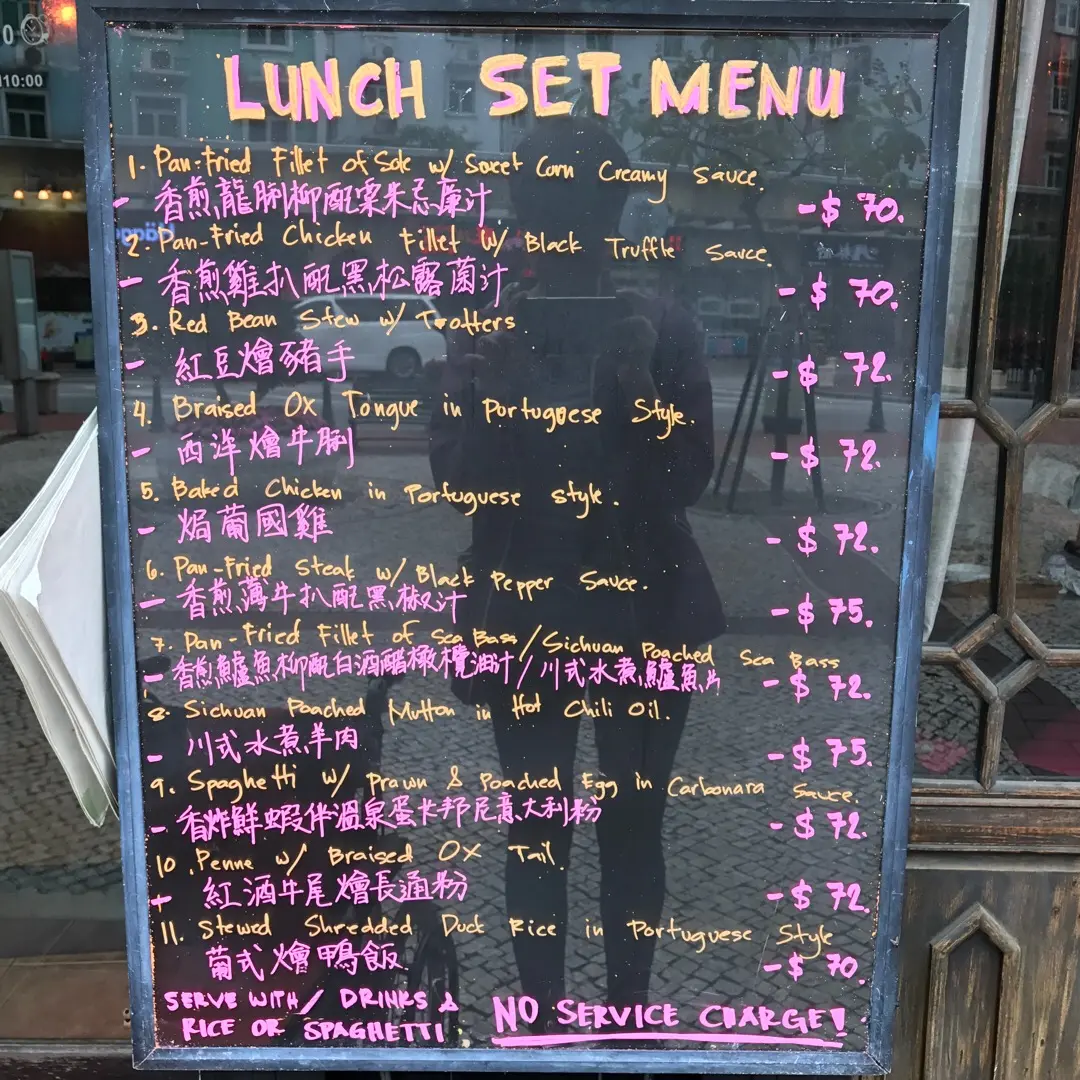 LUNCH SET MENU
1. Pan-Fried Fillet of Sole w/ Sweet Corn Creamy Sauce.
- 香煎龍脷柳配粟米忌廉汁 -$ 70.
2. Pan-Fried Chicken Fillet w/ Black Truffle Sauce.
- 香煎雞扒配黑松露菌汁 -$ 70.
3. Red Bean Stew w/ Trotters.
- 紅豆燴豬手 -$ 72.
4. Braised Ox Tongue in Portuguese Style.
- 西洋燴牛脷 -$ 72.
5. Baked Chicken in Portuguese style.
- 焗葡國雞 -$ 72.
6. Pan-Fried Steak w/ Black Pepper Sauce.
- 香煎薄牛扒配黑椒汁 -$ 75.
7. Pan-Fried Fillet of Sea Bass / Sichuan Poached Sea Bass
- 香煎鱸魚柳配白酒醋橄欖油汁 / 川式水煮鱸魚片 -$ 72.
8. Sichuan Poached Mutton in Hot Chili Oil.
- 川式水煮羊肉 -$ 75.
9. Spaghetti w/ Prawn & Poached Egg in Carbonara Sauce.
- 香炸鮮蝦伴溫泉蛋卡邦尼意大利粉 -$ 72.
10. Penne w/ Braised Ox Tail.
- 紅酒牛尾燴長通粉 -$ 72.
11. Stewed Shredded Duck Rice in Portuguese Style
葡式燴鴨飯 -$ 70.
SERVE WITH/ DRINKS &
RICE OR SPAGHETTI
NO SERVICE CHARGE!